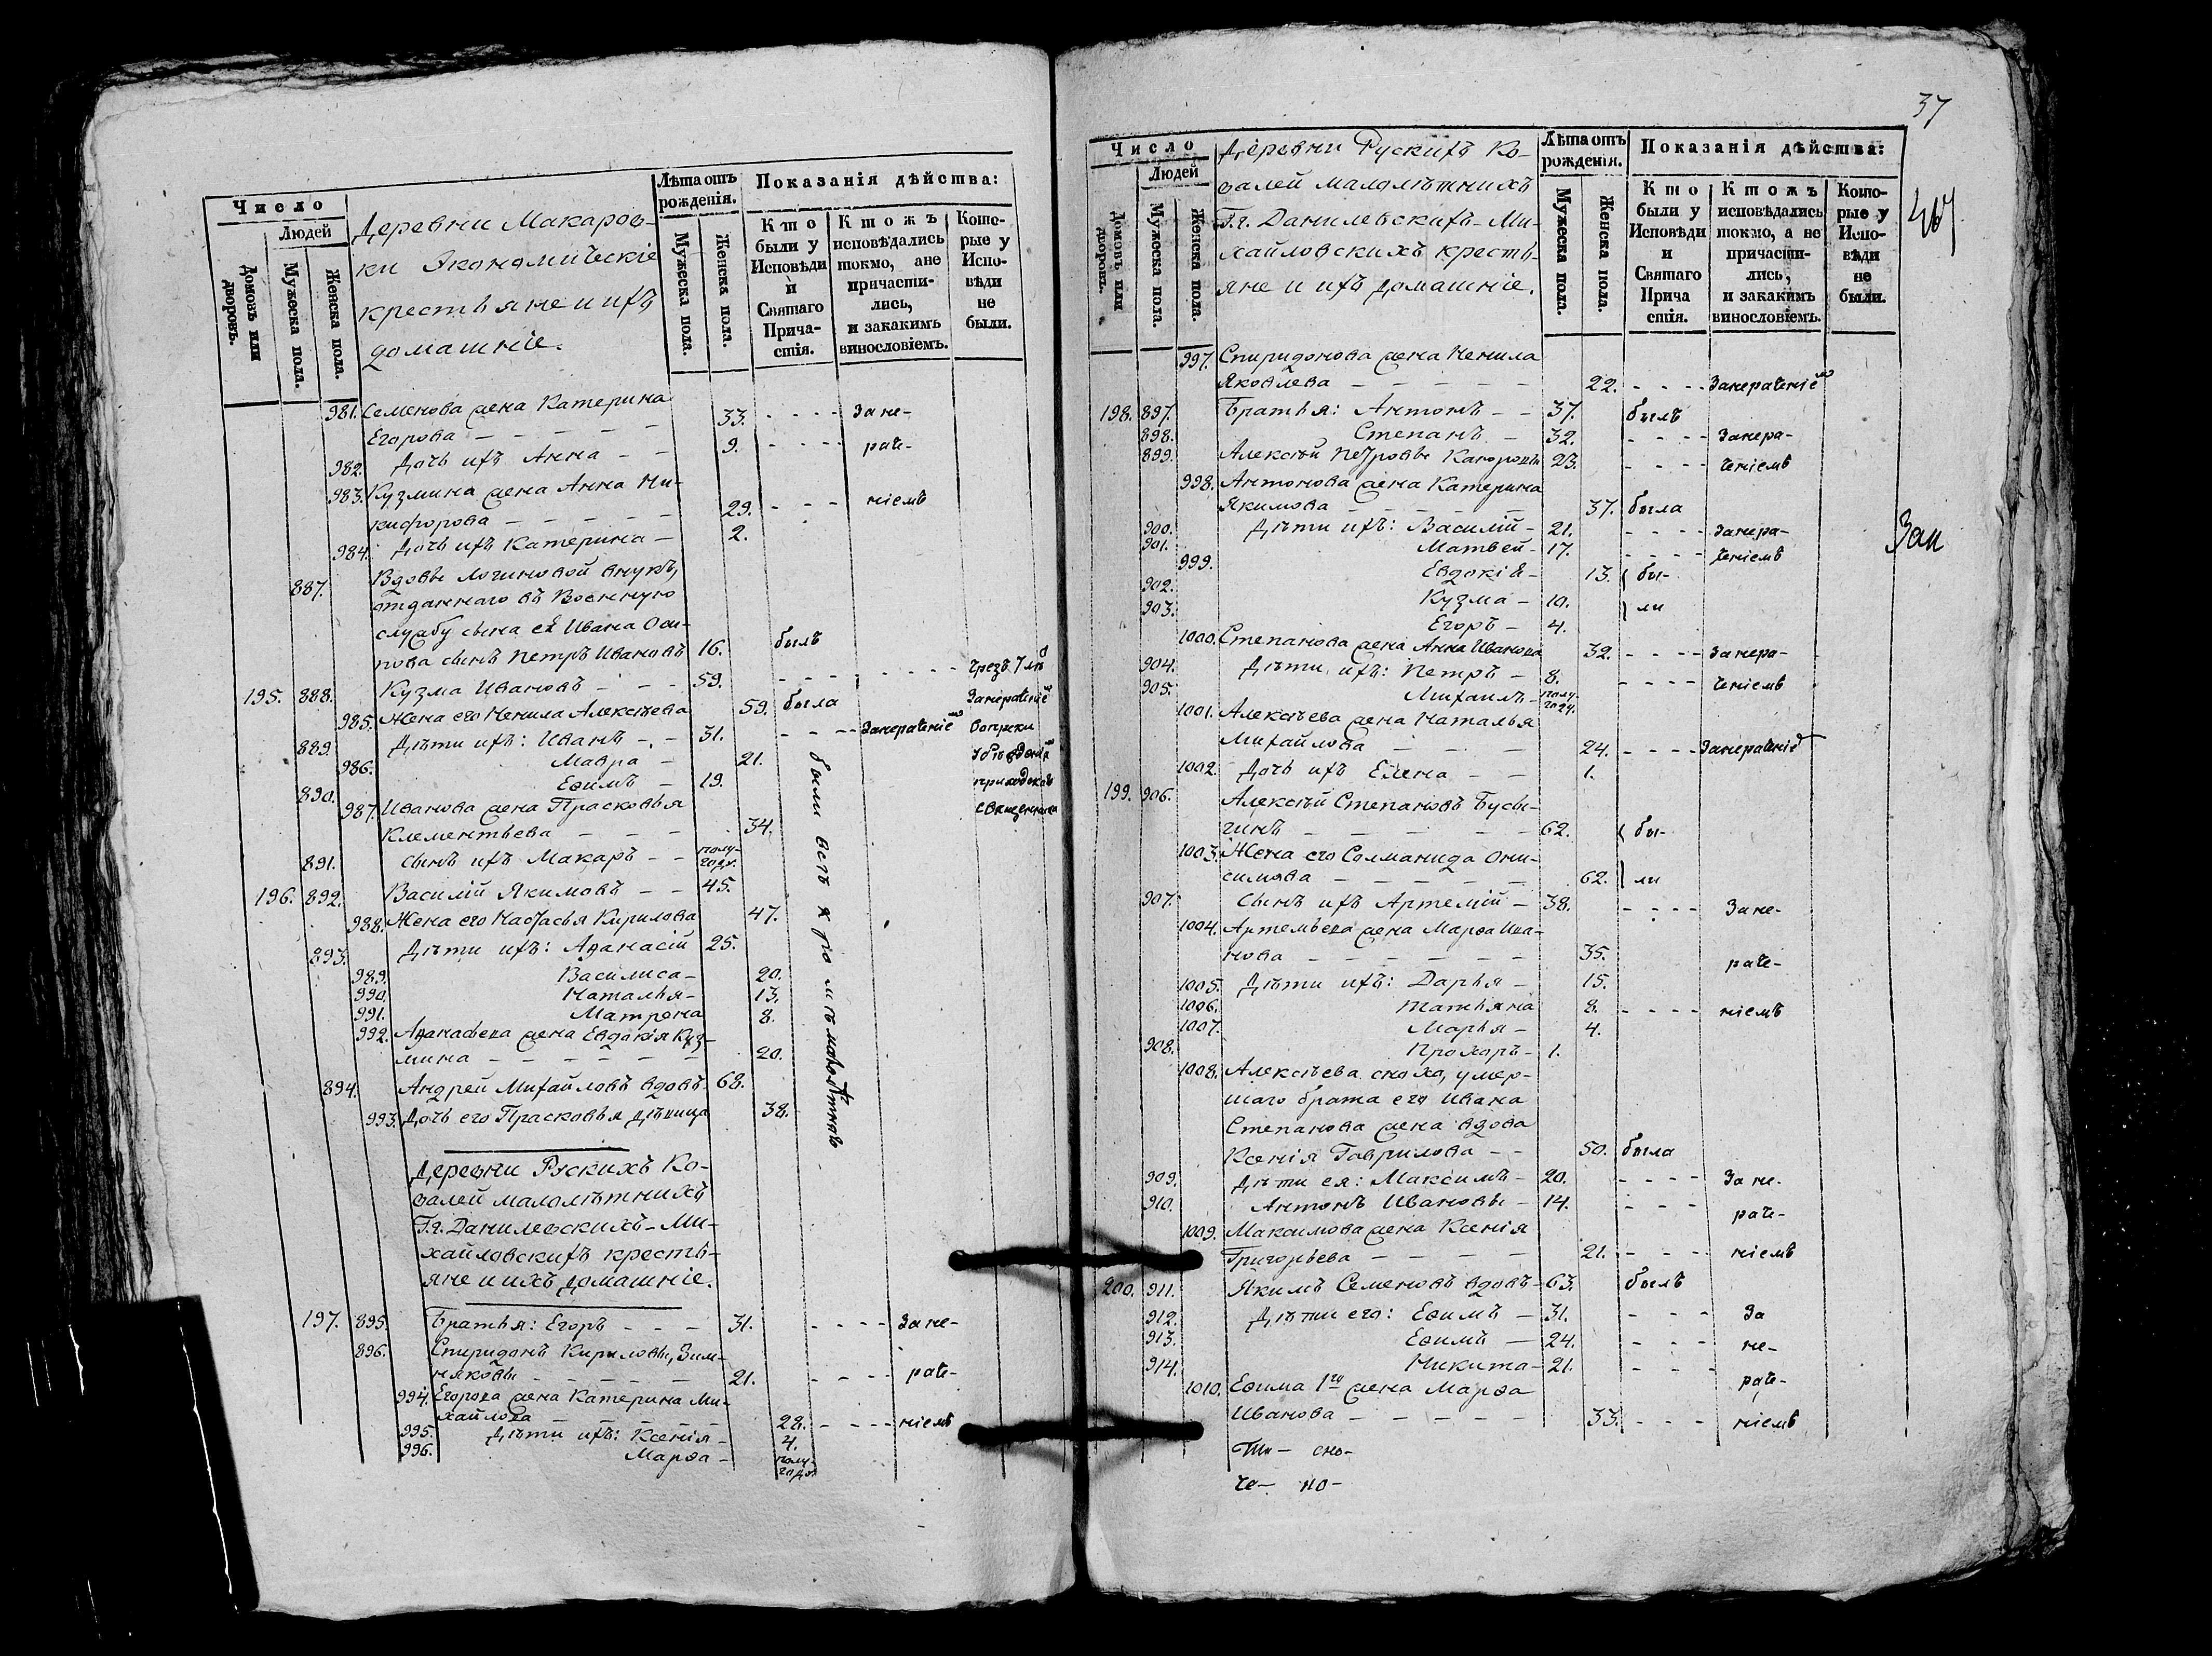 Число
Людей
Домовъ или дворовъ.
Мужеска пола.
Женска пола.
Деревни Макаров-
ки Экономическіе
крестьяне и ихъ
домашніе.
Лѣта отъ рожденія.
Мужеска пола.
Женска пола.
Показанія дѣйства:
Кто были у Исповѣди и Святаго Прича-стія.
Ктожъ исповѣдались токмо, ане причасти-лись, и закакимъ винословіемъ.
Кото-рые у Испо-вѣди не были.
981. Семенова жена Катерина
Егорова — — — — — 33. - - - - За не-
982. Дочь ихъ Анна — — 9. - - - - раче-
983. Кузмина жена Анна Ни-
кифорова — — — — — 29. - - - ніемъ
984. Дочь ихъ Катерина — 2.
887. Вдовы Логиновой внукъ,
отданнаго въ Военную
службу сына её Ивана Оси-
пова сынъ Петръ Ивановъ 16. былъ
195. 888. Кузма Ивановъ - - - 59. - - - - - - - - - чрезъ 7 лѣ
985. Жена его Ненила Алексѣева 59. была Занераченіе
889. Дѣти ихъ: Иванъ - - - 31. - - - - Занераченіе вопреки
986. Мавра — 21. убѣжденія
890. Еѳимъ — 19. приходскаго
987. Иванова жена Прасковья священника
Клементьева — — — 34.
891. Сынъ ихъ Макаръ — — полу-году.
196. 892. Василій Якимовъ — — 45.
988. Жена его Настасья Кирилова 47.
893. Дѣти ихъ: Аѳанасій 25.
989. Василиса — 20.
990. Наталья — 13.
991. Матрона 8.
992. Аѳанасьева жена Евдокія Куз-
мина — — — — — 20.
894. Андрей Михайловъ вдовъ 68.
993. Дочь его Прасковья дѣвица 38.
были всѣ кромѣ малолѣтныхъ
Деревни Рускихъ Ко-
валей малолѣтнихъ
Г.г. Данилевскихъ-Ми-
хайловскихъ кресть-
яне и ихъ домашніе.
197. 895. Братья: Егоръ - - - 31. - - - - За не-
896. Спиридонъ Кириловы, Зим-
няковы — — — — — 21. - - - - раче-
994. Егорова жена Катерина Ми-
хайлова — — — — — 28. - - - - ніемъ
995. Дѣти ихъ: Ксенія — 4.
996. Марѳа — полу-году.
37
Число
Людей
Домовъ или дворовъ.
Мужеска пола.
Женска пола.
Деревни Рускихъ Ко-
валей малолѣтнихъ
Г.г. Данилевскихъ-Ми-
хайловскихъ кресть-
яне и ихъ домашніе.
Лѣта отъ рожденія.
Мужеска пола.
Женска пола.
Показанія дѣйства:
Кто были у Исповѣди и Святаго Прича стія.
Ктожъ исповѣдались токмо, а не причасти-лись, и закакимъ винословіемъ.
Кото-рые у Испо-вѣди не были.
997. Спиридонова жена Ненила
Яковлева — — — — — 22. - - - - Занераченіе
198. 897. Братья: Антонъ — — 37. былъ
898. Степанъ — 32. - - - - Занера-
899. Алексѣй Петровы 23. - - - - ченіемъ
998. Антонова жена Катерина
Якимова — — — — — 37. была
900. Дѣти ихъ: Василій — 21. - - - - Занера-
901. Матвей — 17. - - - - ченіемъ
999. Евдокія — 13. бы-
902. Кузма — 10. ли
903. Егоръ — 4.
1000. Степанова жена Анна Иванова 32. - - - - Занера-
904. Дѣти ихъ: Петръ — 8. - - - - ченіемъ
905. Михаилъ — полу-году.
1001. Алексѣева жена Наталья
Михайлова — — — — 24. - - - - Занераченіе
1002. Дочь ихъ Елена — — 1.
199. 906. Алексѣй Степановъ Бусы-
гинъ — — — — — 62. бы-
1003. Жена его Соломанида Они-
симова — — — — — 62. ли
907. Сынъ ихъ Артемій — 38. - - - - За не-
1004. Артемьева жена Марѳа Ива-
нова — — — — — 35. раче-
1005. Дѣти ихъ: Дарья — 15.
1006. Татьяна 8. - - - - ніемъ
1007. Марья — 4.
908. Прохоръ — 1.
1008. Алексѣева сноха, умер-
шаго брата его Ивана
Степанова жена вдова
Ксенія Гаврилова — — 50. была
909. Дѣти ея: Максимъ — 20. - - - - За не-
910. Антонъ Ивановы — 14. - - - раче-
1009. Максимова жена Ксенія
Григорьева — — — — 21. - - - - ніемъ
200. 911. Якимъ Семеновъ вдовъ — 63. былъ
912. Дѣти его: Еѳимъ — 31. - - - За
913. Еѳимъ — 24. - - - не-
914. Никита — 21. - - - раче-
1010. Еѳима 1го жена Марѳа
Иванова — — — — — 33. - - - ніемъ